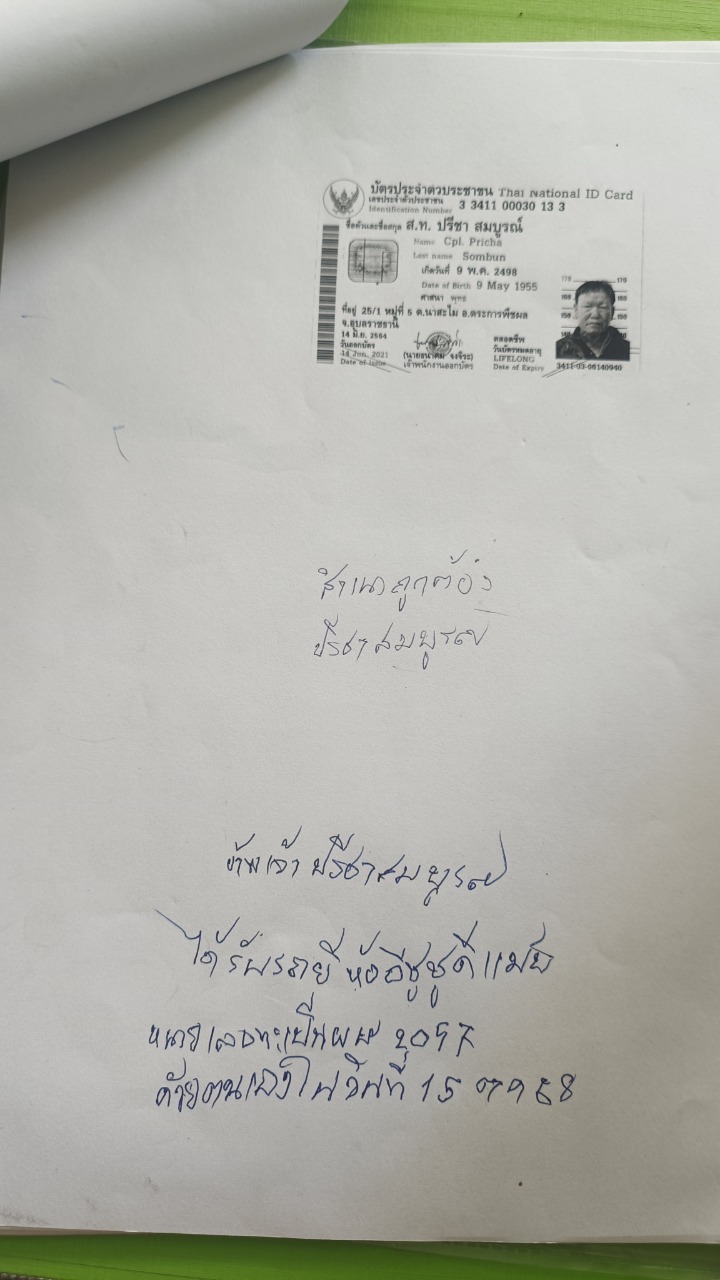 บัตรประจำตัวประชาชน Thai National ID Card
เลขประจำตัวประชาชน
Identification Number 3 3411 00030 13 3
ชื่อตัวและชื่อสกุล ส.ท. ปรีชา สมบูรณ์
Name Cpl. Pricha
Last name Sombun
เกิดวันที่ 9 พ.ค. 2498
Date of Birth 9 May 1955
ศาสนา พุทธ
ที่อยู่ 25/1 หมู่ที่ 5 ต.นาสะไม อ.ตระการพืชผล
จ.อุบลราชธานี
14 มิ.ย. 2564
วันออกบัตร
14 Jun. 2021
Date of Issue
เจ้าพนักงานออกบัตร
ตลอดชีพ
วันบัตรหมดอายุ
LIFELONG
Date of Expiry
3411-03-06140940
สำเนาถูกต้อง
ปรีชา สมบูรณ์
ข้าพเจ้า ปรีชา สมบูรณ์
ได้รับรถ อีซูซุดีแม็ก
หมายเลขทะเบียน 2097
ด้วยตนเองในวันที่ 15 68